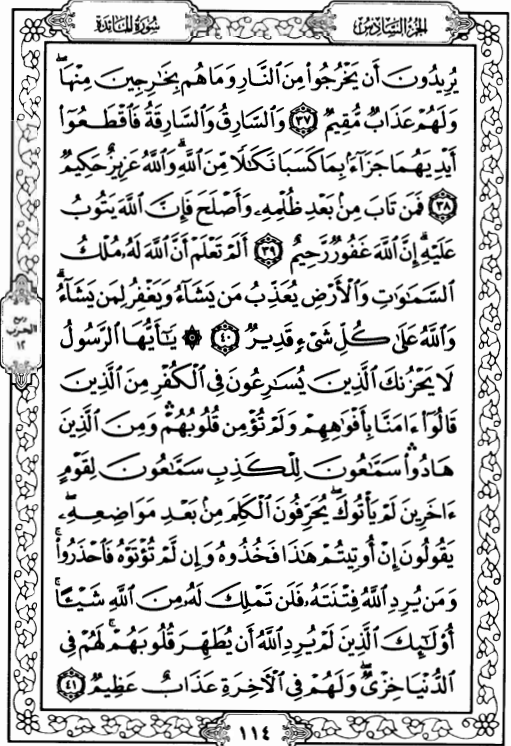 سُورَةُ المَائِدَةِ
الجُزْءُ السَّادِسُ
يُرِيدُونَ أَن يَخْرُجُوا۟ مِنَ ٱلنَّارِ وَمَا هُم بِخَٰرِجِينَ مِنْهَا ۖ
وَلَهُمْ عَذَابٌ مُّقِيمٌ ٣٧ وَٱلسَّارِقُ وَٱلسَّارِقَةُ فَٱقْطَعُوٓا۟
أَيْدِيَهُمَا جَزَآءًۢ بِمَا كَسَبَا نَكَٰلًا مِّنَ ٱللَّهِ ۗ وَٱللَّهُ عَزِيزٌ حَكِيمٌ
٣٨ فَمَن تَابَ مِنۢ بَعْدِ ظُلْمِهِۦ وَأَصْلَحَ فَإِنَّ ٱللَّهَ يَتُوبُ
عَلَيْهِ ۗ إِنَّ ٱللَّهَ غَفُورٌ رَّحِيمٌ ٣٩ أَلَمْ تَعْلَمْ أَنَّ ٱللَّهَ لَهُۥ مُلْكُ
ٱلسَّمَٰوَٰتِ وَٱلْأَرْضِ يُعَذِّبُ مَن يَشَآءُ وَيَغْفِرُ لِمَن يَشَآءُ ۗ
وَٱللَّهُ عَلَىٰ كُلِّ شَىْءٍ قَدِيرٌ ٤٠ ۞ يَٰٓأَيُّهَا ٱلرَّسُولُ
لَا يَحْزُنكَ ٱلَّذِينَ يُسَٰرِعُونَ فِى ٱلْكُفْرِ مِنَ ٱلَّذِينَ
قَالُوٓا۟ ءَامَنَّا بِأَفْوَٰهِهِمْ وَلَمْ تُؤْمِن قُلُوبُهُمْ ۛ وَمِنَ ٱلَّذِينَ
هَادُوا۟ ۛ سَمَّٰعُونَ لِلْكَذِبِ سَمَّٰعُونَ لِقَوْمٍ
ءَاخَرِينَ لَمْ يَأْتُوكَ ۖ يُحَرِّفُونَ ٱلْكَلِمَ مِنۢ بَعْدِ مَوَاضِعِهِۦ ۖ
يَقُولُونَ إِنْ أُوتِيتُمْ هَٰذَا فَخُذُوهُ وَإِن لَّمْ تُؤْتَوْهُ فَٱحْذَرُوا۟ ۚ
وَمَن يُرِدِ ٱللَّهُ فِتْنَتَهُۥ فَلَن تَمْلِكَ لَهُۥ مِنَ ٱللَّهِ شَيْـًٔا ۚ
أُو۟لَٰٓئِكَ ٱلَّذِينَ لَمْ يُرِدِ ٱللَّهُ أَن يُطَهِّرَ قُلُوبَهُمْ ۚ لَهُمْ فِى
ٱلدُّنْيَا خِزْىٌ ۖ وَلَهُمْ فِى ٱلْـَٔاخِرَةِ عَذَابٌ عَظِيمٌ ٤١
ربع
الحزب
١٢
١١٤